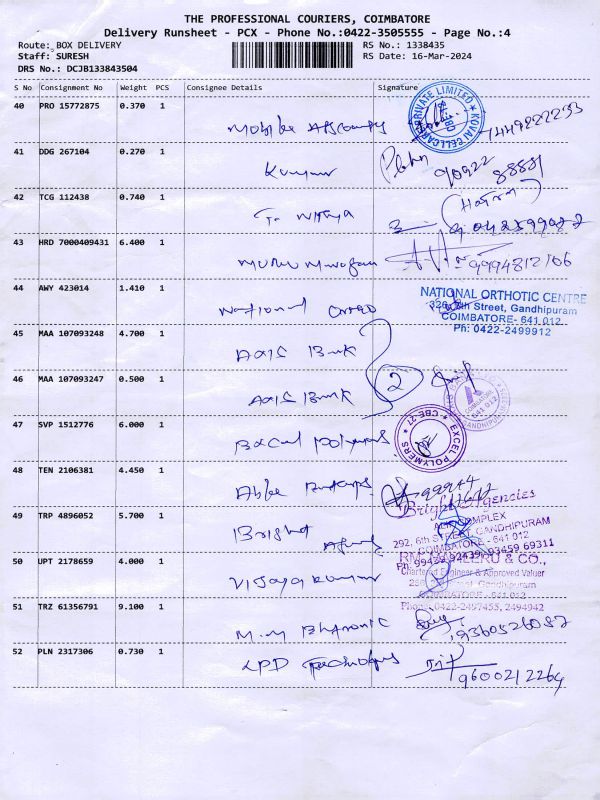 THE PROFESSIONAL COURIERS, COIMBATORE
Delivery Runsheet - PCX - Phone No.:0422-3505555 - Page No.:4
Route: BOX DELIVERY
Staff: SURESH
DRS No.: DCJB133843504
RS No.: 1338435
RS Date: 16-Mar-2024
S No Consignment No Weight PCS Consignee Details Signature
40 PRO 15772875 0.370 1
KOVAI CELLCARE PRIVATE LIMITED
41 DDG 267104 0.270 1
Kumar
90922
88881
42 TCG 112438 0.740 1
43 HRD 7000409431 6.400 1
9994812106
44 AWY 423014 1.410 1
National Ortho
NATIONAL ORTHOTIC CENTRE
326, 6th Street, Gandhipuram
COIMBATORE- 641 012
Ph: 0422-2499912
45 MAA 107093248 4.700 1
Axis Bank
2
46 MAA 107093247 0.500 1
Axis Bank
COIMBATORE
641 012
GANDHIPURAM
47 SVP 1512776 6.000 1
Excel Polymers
EXCEL POLYMERS CBE-27
48 TEN 2106381 4.450 1
49 TRP 4896052 5.700 1
Bright Agency
Bright Agencies
COMPLEX
292, 6th STREET, GANDHIPURAM
COIMBATORE - 641 012
Ph: 99422 92439, 93459 69311
50 UPT 2178659 4.000 1
Vijayakumar
& CO.,
Chartered Engineer & Approved Valuer
COIMBATORE - 641 012
Phone: 0422-2497455, 2494942
51 TRZ 61356791 9.100 1
M.M
9360526087
52 PLN 2317306 0.730 1
LPD Technologies
9600212264